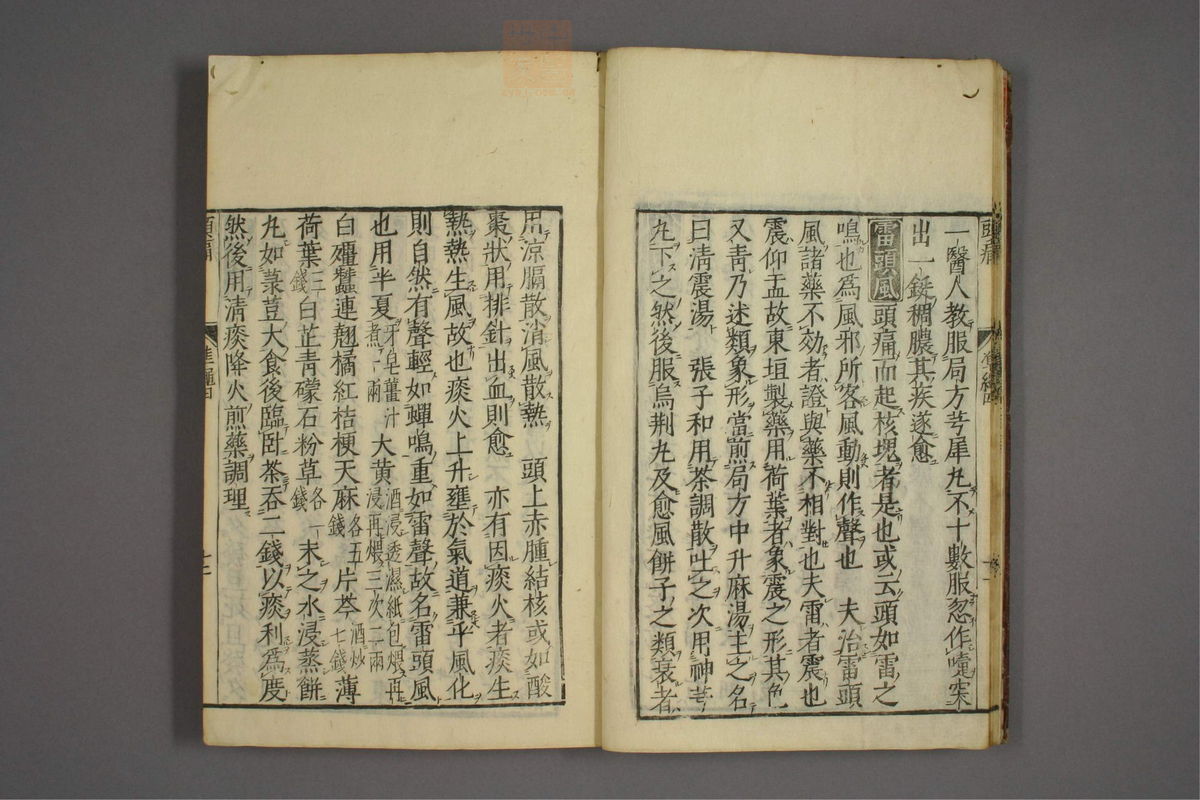 一醫人教服局方芎犀丸不十數服忽作嚏突
出一鋌稠膿其疾遂愈
雷頭風頭痛而起核塊者是也或云頭如雷之
鳴也為風邪所客風動則作聲也　夫治雷頭
風諸藥不効者證與藥不相對也夫雷者震也
震仰盂故東垣製藥用荷葉者象震之形其色
又青乃述類象形當煎局方中升麻湯主之名
曰清震湯　張子和用茶調散吐之次用神芎
丸下之然後服烏荊丸及愈風餅子之類衰者
用涼膈散消風散熱　頭上赤腫結核或如酸
棗狀用排針出血則愈　亦有因痰火者痰生
熱熱生風故也痰火上升壅於氣道兼乎風化
則自然有聲輕如蟬鳴重如雷聲故名雷頭風
也用半夏牙皂薑汁煮一兩大黃酒浸透濕紙包煨再浸再煨三次二兩
白殭蠶連翹橘紅桔梗天麻各五錢片芩酒炒七錢薄
荷葉三錢白芷青礞石粉草各一錢末之水浸蒸餅
丸如菉荳大食後臨臥茶吞二錢以痰利為度
然後用清痰降火煎藥調理
頭痛